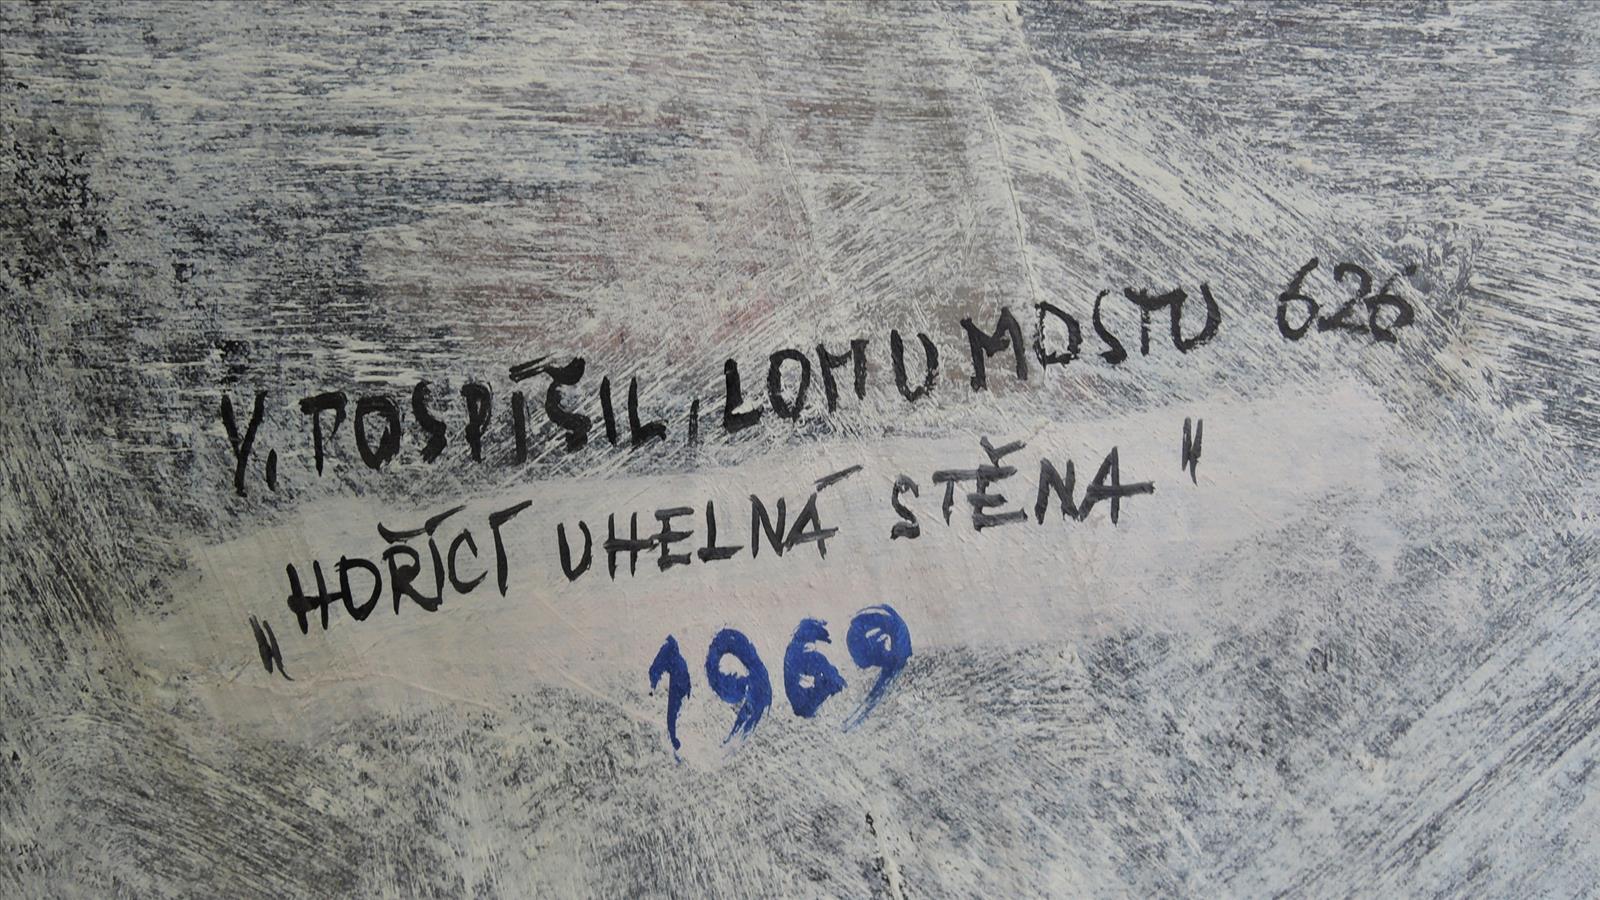 V. POSPÍŠIL, LOM U MOSTU 626
„HOŘÍCÍ UHELNÁ STĚNA"
1969